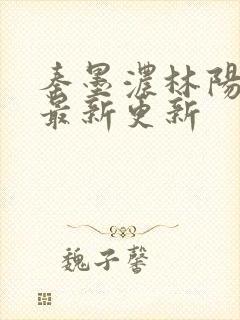 秦墨濃林陽
最新更新
魏子馨